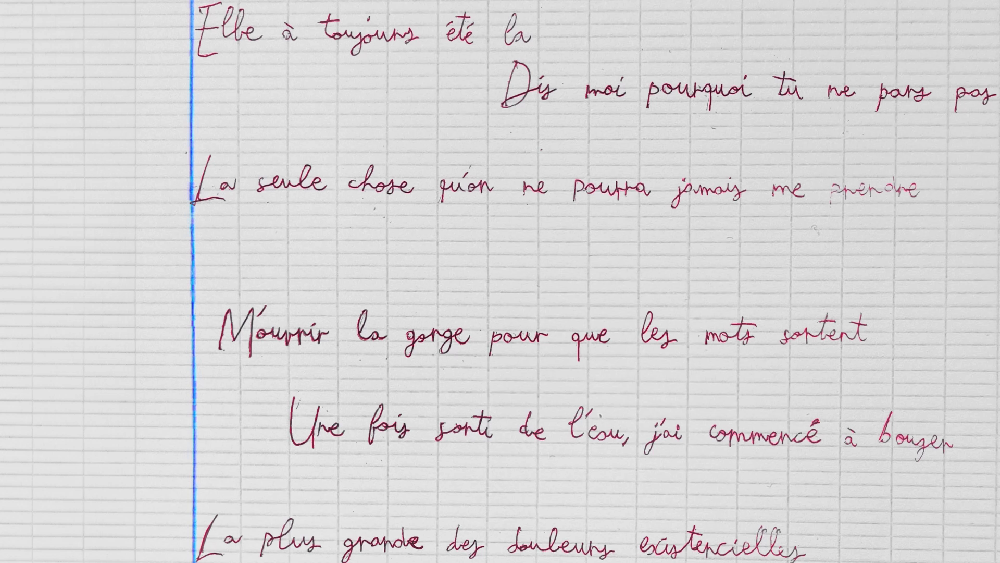 Elle à toujours été la
Dis moi pourquoi tu ne pars pas
La seule chose qu'on ne pourra jamais me prendre
M'ouvrir la gorge pour que les mots sortent
Une fois sorti de l'éau, j'ai commencé à bouger
La plus grande des douleurs existencielles